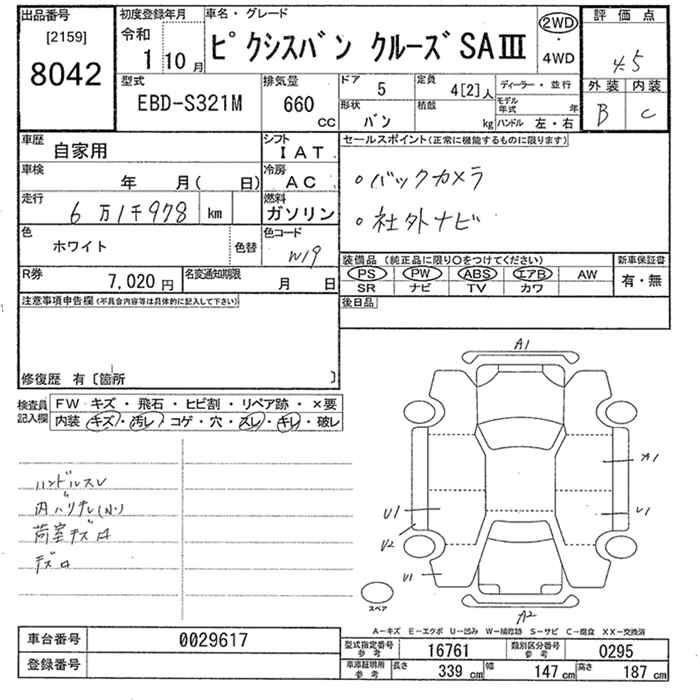 出品番号 初度登録年月 車名・グレード 2WD ・ 4WD 評価点
[2159] 令和 1年 10月 ピクシスバン クルーズSAⅢ 4.5
8042 型式 EBD-S321M 排気量 660 CC ドア 5 定員 4[2]人 ディーラー・並行 外装 B 内装 C
形状 バン 積載 kg モデル年式 年 ハンドル 左・右
車歴 自家用 シフト IAT セールスポイント(正常に機能するものに限ります)
車検 年 月( 日) 冷房 AC ○バックカメラ
走行 6万1千978 km 燃料 ガソリン ○社外ナビ
色 ホワイト 色替 色コード W19
装備品(純正品に限り○をつけてください) 新車保証書
R券 7,020円 名変通知期限 月 日 PS PW ABS エアB AW 有・無
SR ナビ TV カワ
注意事項申告欄(不具合内容等は具体的に記入して下さい) 後日品
修復歴 有〔箇所 〕
検査員記入欄 FW キズ・飛石・ヒビ割・リペア跡・×要
内装 キズ・汚レ・コゲ・穴・スレ・キレ・破レ
ハンドルスレ
内ハリキレ(小)
A1
A1
U1
U1
U2
U1
A2
スペア
A-キズ E-エクボ U-凹み W-補修跡 S-サビ C-腐食 XX-交換済
車台番号 0029617 型式指定番号 参考 16761 類別区分番号 参考 0295
登録番号 車庫証明用 参考 長さ 339 cm 幅 147 cm 高さ 187 cm